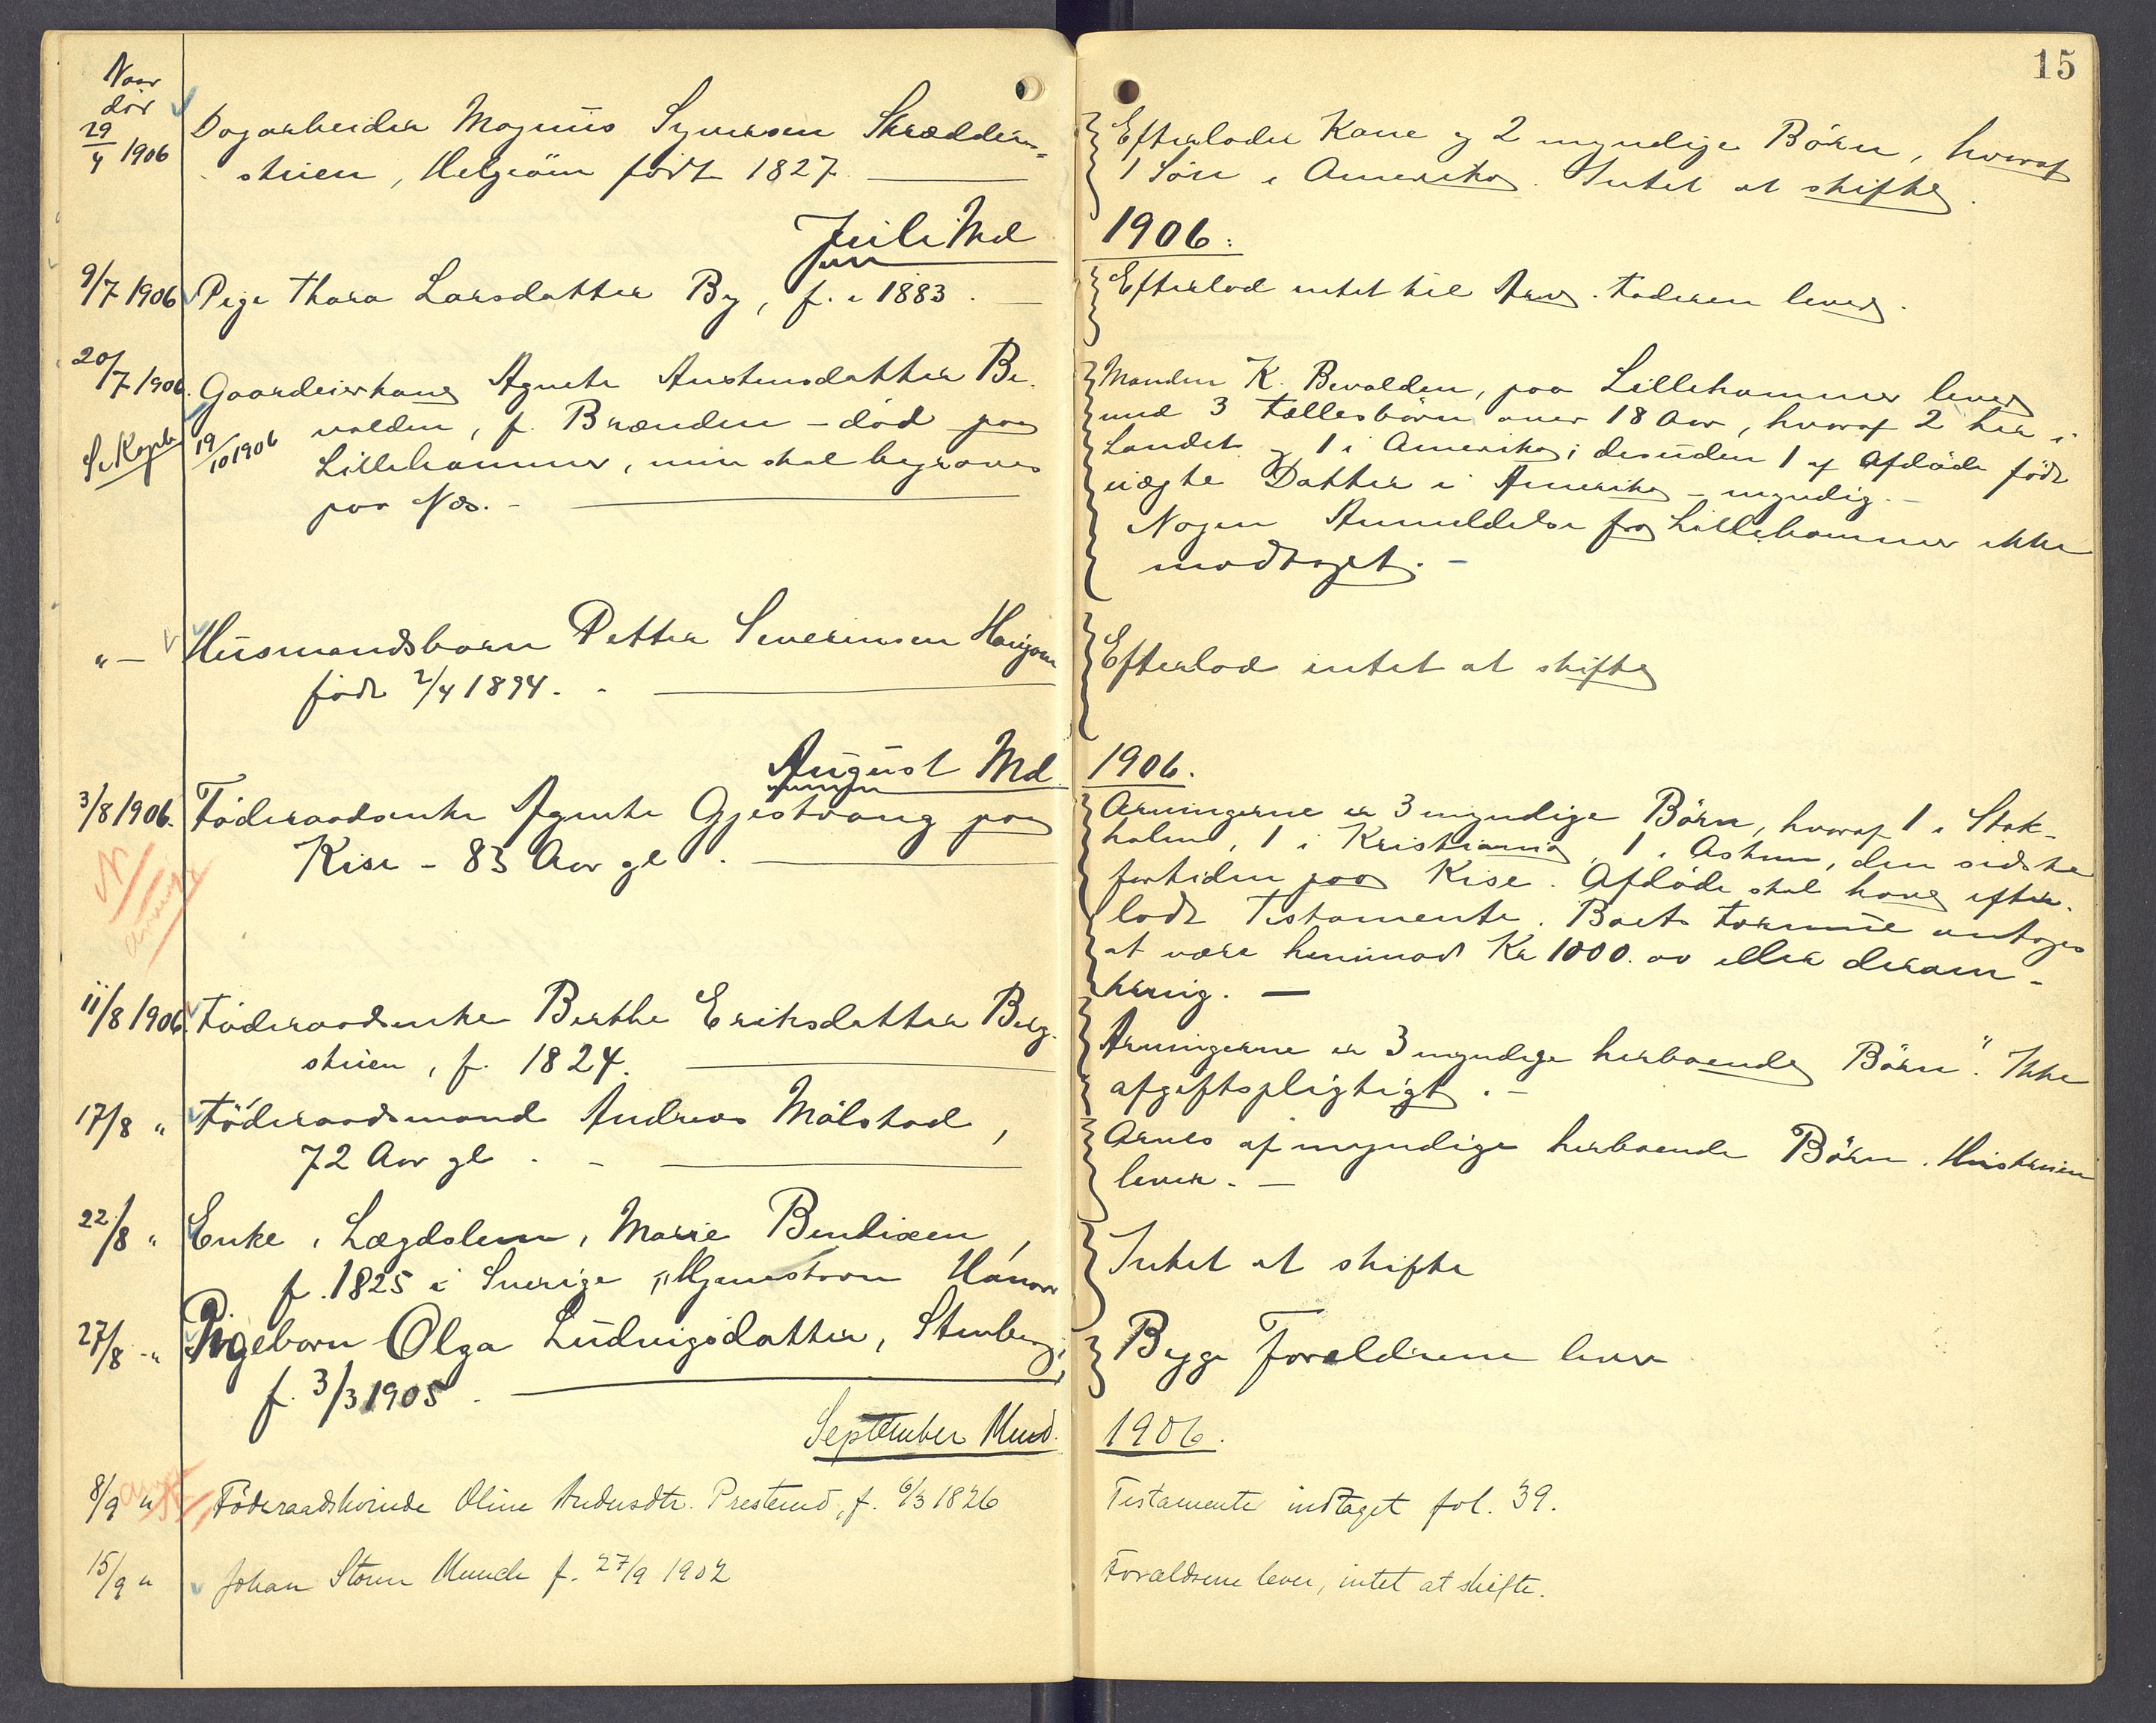 15
Naar
dør
29/4 1906
Dagarbeider Magnus Syversen Skrædder-
stuen, Helgøen født 1827
Efterlader Kone og 2 myndige Børn, hvoraf
1 Søn i Amerika. Intet at skifte.
Juli Md
1906.
9/7 1906 Pige Thora Larsdatter By, f. i 1883.
Efterlod intet til Arv. Faderen lever.
20/7 1906. Gaardeierkone Agnete Austensdatter Be-
valden, f. Brænden - død paa
Lillehammer, men skal begraves
paa Næs. -
19/10 1906
Manden K. Bevalden, paa Lillehammer lever
med 3 Fællesbørn over 18 Aar, hvoraf 2 her i
Landet og 1 i Amerika; desuden 1 af Afdøde født
uægte Datter i Amerika - myndig. -
Nogen Anmeldelse fra Lillehammer ikke
modtaget. -
" - Husmandsbarn Petter Severinsen
født 2/4 1894. -
Efterlod intet at skifte
August Md
1906.
3/8 1906. Føderaadsenke Agnete Gjestvang paa
Kise - 83 Aar gl.
Arvingerne er 3 myndige Børn, hvoraf 1 i Stok-
holm, 1 i Kristiania, 1 i Askim, den sidste
fortiden paa Kise. Afdøde skal have efter-
ladt Testamente. Boets Formue antages
at være henimod Kr 1000.oo eller derom-
kring. -
11/8 1906. Føderaadsenke Berthe Eriksdatter Berg-
stuen, f. 1824.
Arvingerne er 3 myndige herboende Børn. Ikke
afgiftspligtigt. -
17/8 " Føderaadsmand Andreas Målstad,
72 Aar gl. -
Arves af myndige herboende Børn. Hustruen
lever. -
22/8 " Enke, Lægdslem, Marie Bendixen,
f. 1825 i Sverige,
Intet at skifte
27/8 - " Pigebarn Olga Ludvigsdatter, Stenberg,
f. 3/3 1905.
Begge Forældrene lever
September Maned.
1906.
8/9 " Føderaadskvinde Oline Andersdtr. Presterud, f. 6/3 1826
Testamente indtaget fol. 39.
15/9 " Johan Storm Munch f. 27/9 1902
Forældrene lever, intet at skifte.